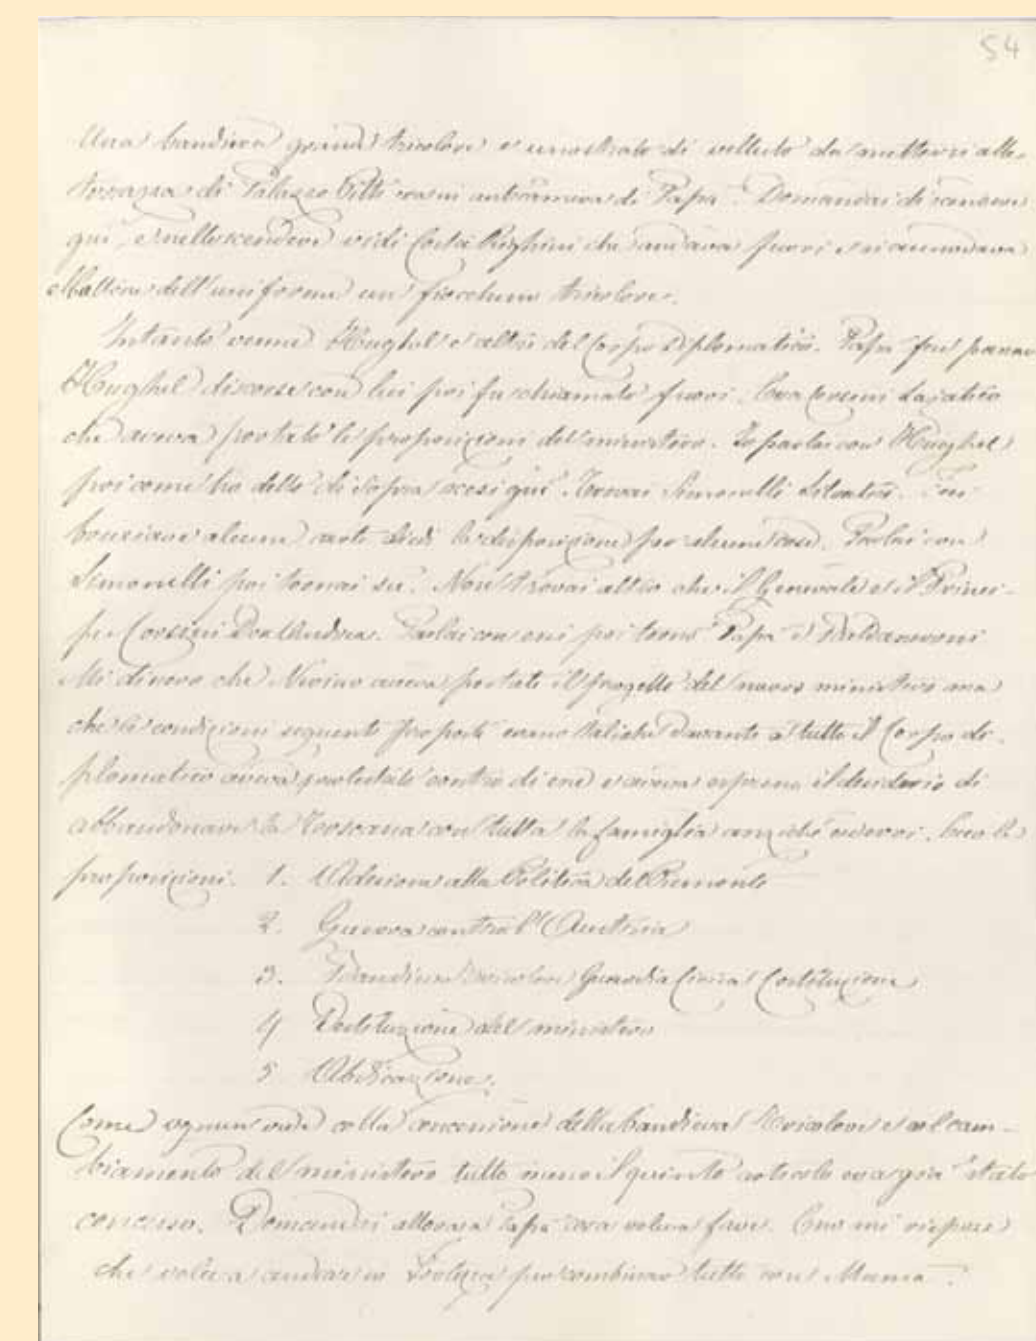 54
Una bandiera grande tricolore e uno strato di velluto da mettersi alla
terrazza di Palazzo Pitti era in anticamera di Papà. Domandai di scendere
qui, e nello scendere vidi Costa Righini che andava fuori e si accomodava
all'uniforme un fiocchetto tricolore.
Intanto venne Hüghel e altri del Corpo Diplomatico. Papà fece passare
Hüghel discorse con lui poi fu chiamato fuori. Era Corsini Lajatico
che aveva portato le proposizioni del ministero. Io parlai con Hüghel
poi come ho detto di sopra scesi qui. Trovai Simonelli Silvatici.
bruciare alcune carte diedi le disposizioni per alcune cose. Parlai con
Simonelli poi tornai su. Non trovai altro che il Generale e il Princi-
pe Corsini Don Andrea. Parlai con essi poi tornò Papà e Baldasseroni
Mi dissero che Neri aveva portato il progetto del nuovo ministero ma
che le condizioni seguenti proposte erano tali che davanti a tutto il Corpo di-
plomatico aveva protestato contro di esse e aveva espresso il desiderio di
abbandonare la Toscana con tutta la famiglia anziché cedervi. Ecco le
proposizioni. 1. Adesione alla Politica del Piemonte
2. Guerra contro l'Austria
3. Bandiera tricolore Guardia Civica Costituzione
4 Destituzione del ministero
5 Abdicazione.
Come ognun vede colla concessione della bandiera tricolore e col cam-
biamento del ministero tutto meno il quinto articolo era già stato
concesso. Domandai allora a Papà cosa voleva fare. Esso mi rispose
che voleva andare in Fortezza per combinare tutto con Mamà.